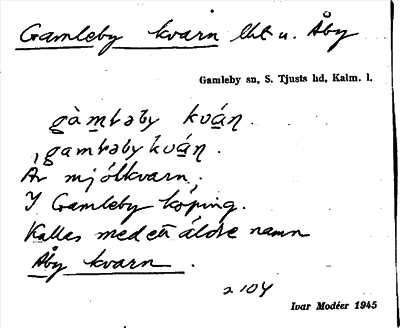 Gamleby kvarn lht u. Åby
Gamleby sn, S. Tjusts hd, Kalm. l.
gàmləby kváɳ.
gamləbykváɳ.
Är mjölkvarn,
I Gamleby köping.
Kallas med ett äldre namn
Åby kvarn.
2104
Ivar Modéer 1945